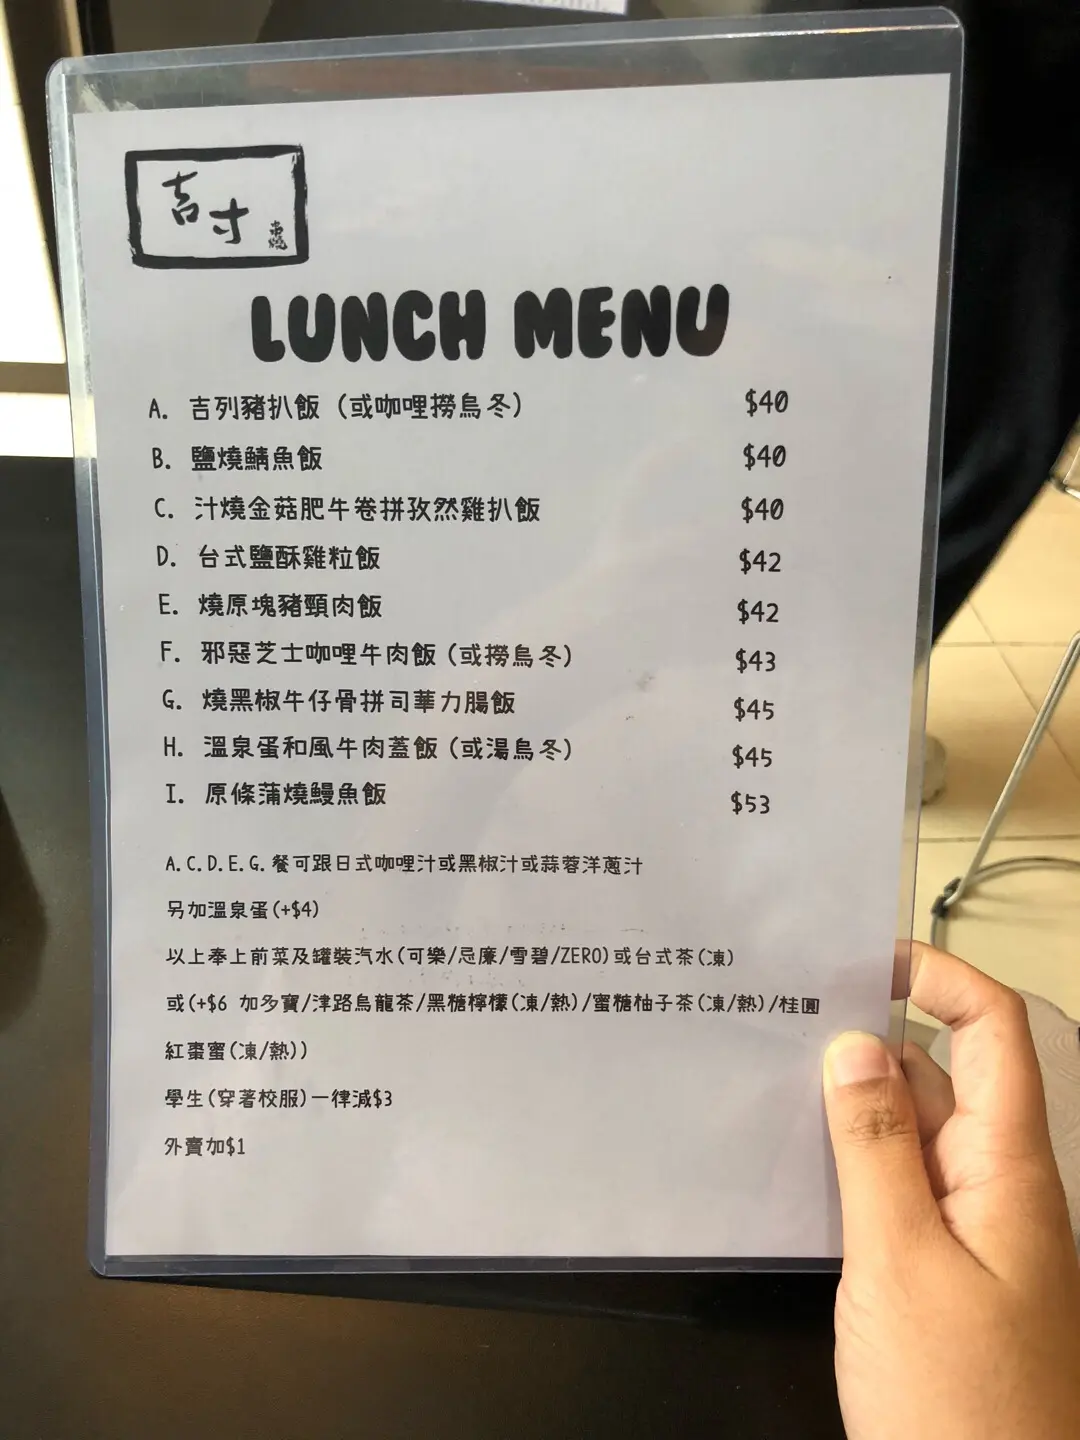 吉寸
串燒
LUNCH MENU
A. 吉列豬扒飯 (或咖哩撈烏冬) $40
B. 鹽燒鯖魚飯 $40
C. 汁燒金菇肥牛卷拼孜然雞扒飯 $40
D. 台式鹽酥雞粒飯 $42
E. 燒原塊豬頸肉飯 $42
F. 邪惡芝士咖哩牛肉飯 (或撈烏冬) $43
G. 燒黑椒牛仔骨拼司華力腸飯 $45
H. 溫泉蛋和風牛肉蓋飯 (或湯烏冬) $45
I. 原條蒲燒鰻魚飯 $53
A.C.D.E.G.餐可跟日式咖哩汁或黑椒汁或蒜蓉洋蔥汁
另加溫泉蛋(+$4)
以上奉上前菜及罐裝汽水(可樂/忌廉/雪碧/ZERO)或台式茶(凍)
或(+$6 加多寶/津路烏龍茶/黑糖檸檬(凍/熱)/蜜糖柚子茶(凍/熱)/桂圓
紅棗蜜(凍/熱))
學生(穿著校服)一律減$3
外賣加$1